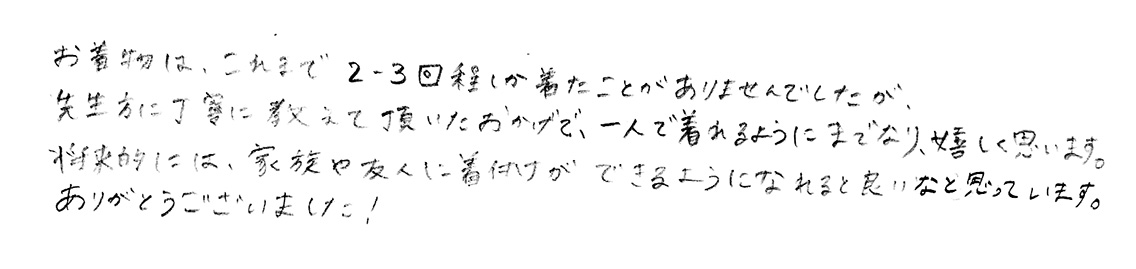 お着物は、これまで2-3回程しか着たことがありませんでしたが、
先生方に丁寧に教えて頂いたおかげで、一人で着れるようにまでなり、嬉しく思います。
将来的には、家族や友人に着付けができるようになれると良いなと思っています。
ありがとうございました!